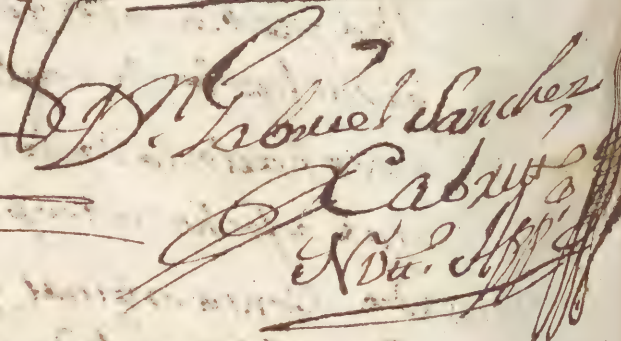 Dn. Gabriel Sanchez
Cabrera
Nott. App.